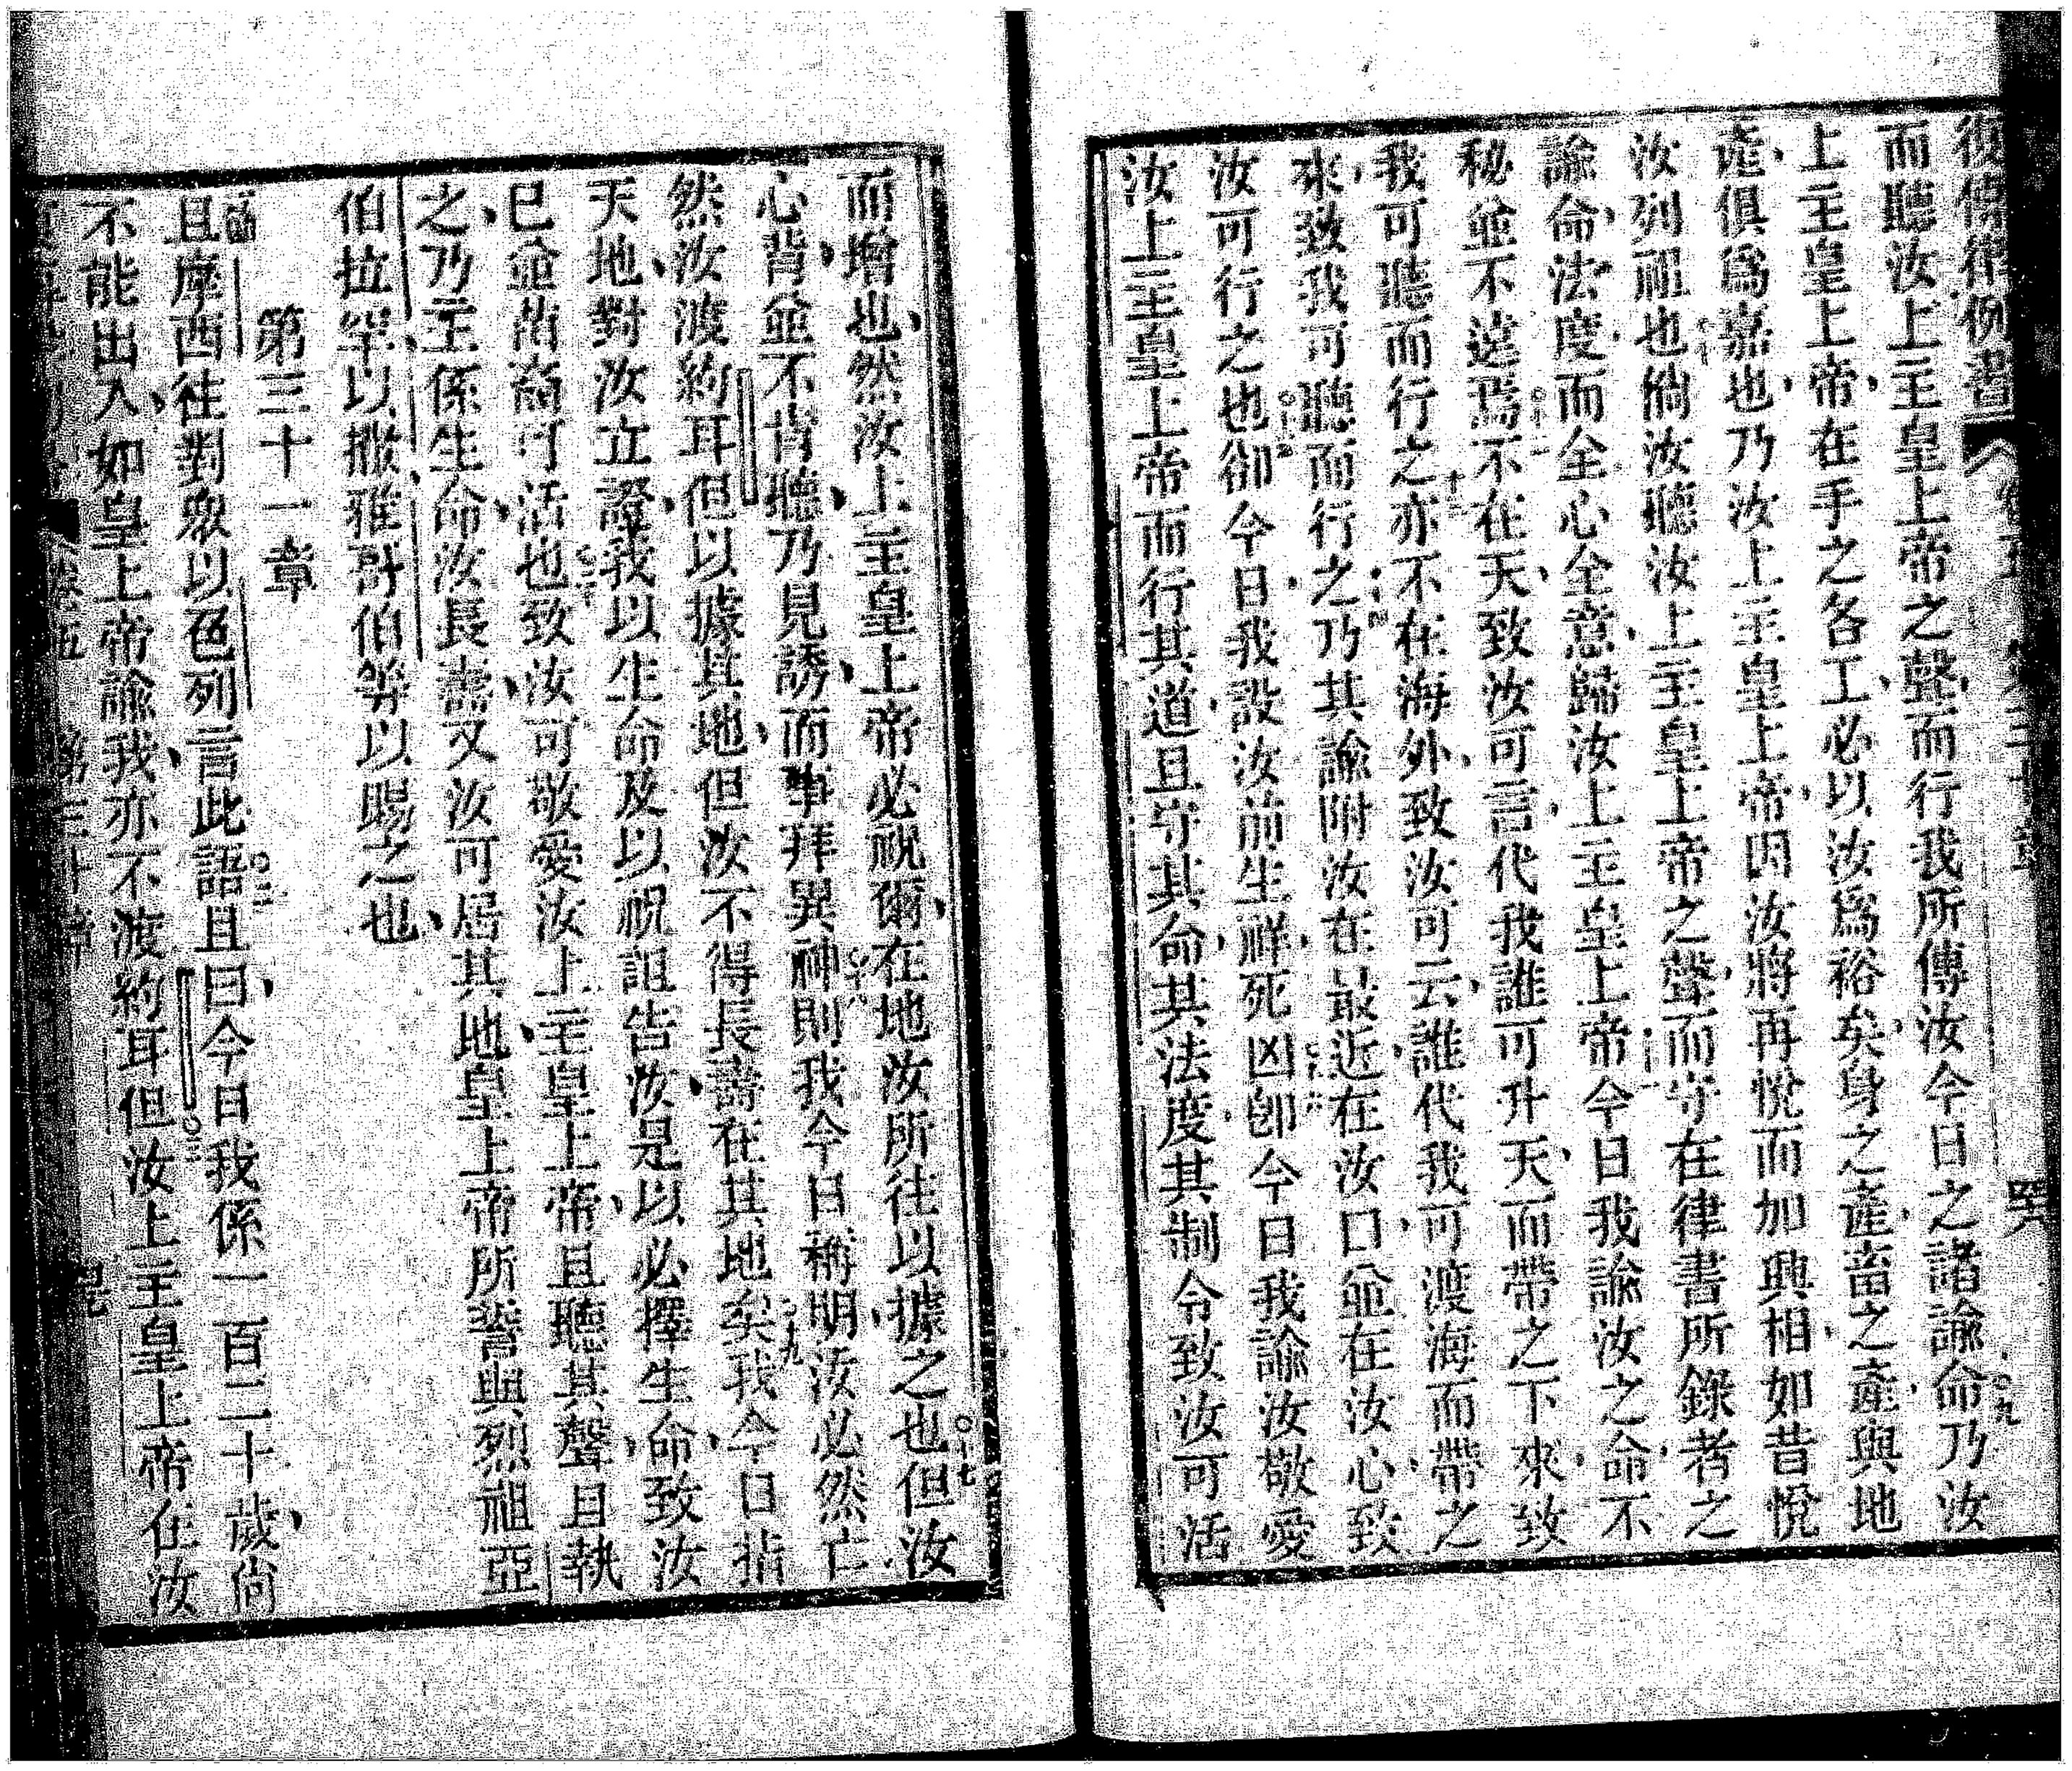 復傳律例書
而聽汝上主皇上帝之聲而行我所傳汝今日之諸諭命乃汝
上主皇上帝在手之各工必以汝爲裕矣身之產畜之產與地
產俱爲嘉也乃汝上主皇上帝因汝將再悅而加興相如昔悅
汝列祖也倘汝聽汝上主皇上帝之聲而守在律書所錄者之
諭命法度而全心全意歸汝上主皇上帝今日我諭汝之命不
秘並不遠焉不在天致汝可言代我誰可升天而帶之下來致
我可聽而行之亦不在海外致汝可云誰代我可渡海而帶之
來致我可聽而行之乃其諭附汝在最近在汝口並在汝心致
汝可行之也卻今日我設汝前生祥死凶卽今日我諭汝敬愛
汝上主皇上帝而行其道且守其命其法度其制令致汝可活
而增也然汝上主皇上帝必祝爾在地汝所往以據之也但汝
心背並不肯聽乃見誘而事拜異神則我今日稱明汝必然亡
然汝渡約耳但以據其地但汝不得長壽在其地矣我今日指
天地對汝立證我以生命及以祝詛告汝是以必擇生命致汝
已並苗裔可活也致汝可敬愛汝上主皇上帝且聽其聲且執
之乃主係生命汝長壽又汝可居其地皇上帝所誓與烈祖亞
伯拉罕以撒雅哥伯等以賜之也
第三十一章
且摩西往對眾以色列言此語且曰今日我係一百二十歲尙
不能出入如皇上帝諭我亦不渡約耳但汝上主皇上帝在汝